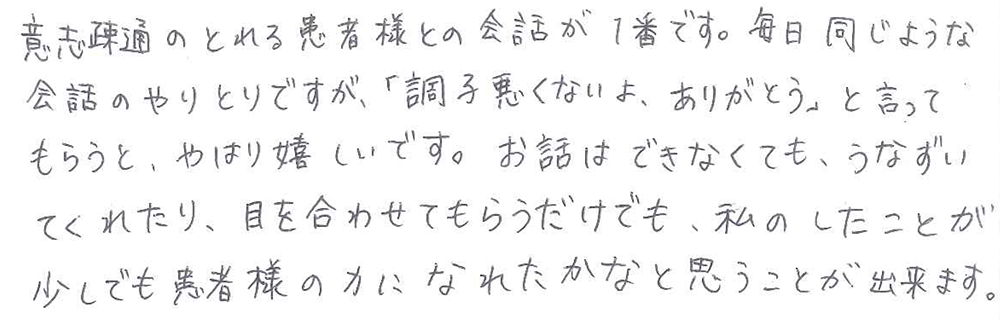 意志疎通のとれる患者様との会話が1番です。毎日同じような
会話のやりとりですが、「調子悪くないよ、ありがとう」と言って
もらうと、やはり嬉しいです。お話はできなくても、うなずい
てくれたり、目を合わせてもらうだけでも、私のしたことが
少しでも患者様の力になれたかなと思うことが出来ます。